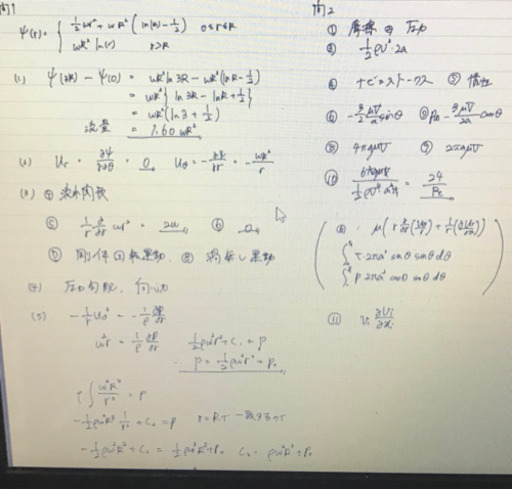 問1
ψ(r) = { ½ωr² + ωR²(ln(R) − ½) 0≤r≤R
ωR² ln(r) r≥R
(1) ψ(3R) − ψ(0) = ωR² ln 3R − ωR²(lnR − ½)
= ωR²{ ln 3R − lnR + ½}
= ωR²(ln3 + ½)
流量 = 1.60 ωR²
(2) Ur = ∂ψ/r∂θ = 0 Uθ = −∂ψ/∂r = −ωR²/r
(3) ④ 流れ関数
⑤ 1/r ∂/∂r ωr² = 2ω ⑥ 0
⑦ 剛体回転運動 ⑧ 渦なし運動
(4) 圧力勾配、向心力
(5) −1/r Uθ² = −1/ρ ∂P/∂r
ω²r = 1/ρ ∂P/∂r ½ρω²r² + C₁ = P
∴ P = ½ρω²r² + P₀
ρ∫ω²R⁴/r³ = P
−½ρω²R⁴ 1/r² + C₂ = P r=Rで一致するので
−½ρω²R² + C₂ = ½ρω²R² + P₀ C₂ = ρω²R² + P₀
問2
① 摩擦 ② 圧力
③ ½ρU²·2a
④ ナビエストークス ⑤ 慣性
⑥ −3/2 μU/a sinθ ⑦ P₀ − 3μU/2a cosθ
⑧ 4πμaU ⑨ 2πaμU
⑩ 6πμaU / ½ρU²a²π = 24/Re
μ( r ∂/∂r( ) + 1/r(∂Ur/∂θ))
∫ τ·2πa² sinθ sinθ dθ
∫ P 2πa² cosθ sinθ dθ
⑪